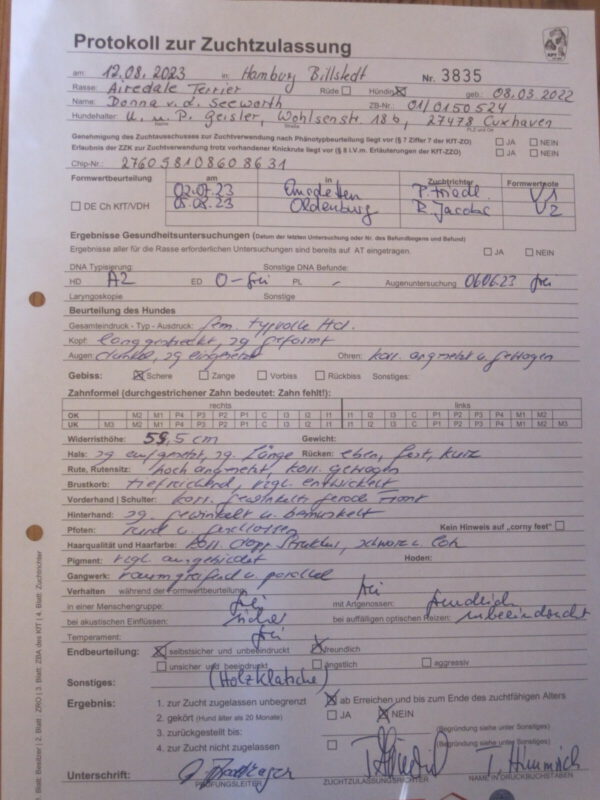 Protokoll zur Zuchtzulassung
am: 12.08.2023 in: Hamburg Billstedt Nr. 3835
Rasse: Airedale Terrier Rüde ☐ Hündin ☒ geb.: 08.03.2022
Name: Donna v.d. Seeworth ZB-Nr.: 01/0150524
Hundehalter: U. u. P. Geisler, Wohlsenstr. 18b, 27478 Cuxhaven
Straße PLZ und Ort
Genehmigung des Zuchtausschusses zur Zuchtverwendung nach Phänotypbeurteilung liegt vor (§ 7 Ziffer 7 der KfT-ZO) ☐ JA ☐ NEIN
Erlaubnis der ZZK zur Zuchtverwendung trotz vorhandener Knickrute liegt vor (§ 8 i.V.m. Erläuterungen der KfT-ZZO) ☐ JA ☐ NEIN
Chip-Nr.: 276058108608631
Formwertbeurteilung am in Zuchtrichter Formwertnote
02.07.23 P. Friedl V1
☐ DE Ch KfT/VDH 05.02.23 Oldenburg R. Jacobs V2
Ergebnisse Gesundheitsuntersuchungen (Datum der letzten Untersuchung oder Nr. des Befundbogens und Befund)
Ergebnisse aller für die Rasse erforderlichen Untersuchungen sind bereits auf AT eingetragen. ☐ JA ☐ NEIN
DNA Typisierung: Sonstige DNA Befunde:
HD A2 ED 0-frei PL - Augenuntersuchung 060623 frei
Laryngoskopie Sonstige
Beurteilung des Hundes
Gesamteindruck - Typ - Ausdruck: fem. typvolle Hd.
Kopf: langgestreckt, zg geformt
Augen: dunkel, zg eingesetzt Ohren: korr. angesetzt u. getragen
Gebiss: ☒ Schere ☐ Zange ☐ Vorbiss ☐ Rückbiss Sonstiges:
Zahnformel (durchgestrichener Zahn bedeutet: Zahn fehlt!):
rechts links
OK M2 M1 P4 P3 P2 P1 C I3 I2 I1 I1 I2 I3 C P1 P2 P3 P4 M1 M2
UK M3 M2 M1 P4 P3 P2 P1 C I3 I2 I1 I1 I2 I3 C P1 P2 P3 P4 M1 M2 M3
Widerristhöhe: 59,5 cm Gewicht:
Hals: zg aufgesetzt, zg. Länge Rücken: eben, fest, kurz
Rute, Rutensitz: hoch angesetzt, korr. getragen
Brustkorb: tiefreichend, vzgl. entwickelt
Vorderhand | Schulter: korr. gewinkelt gerade Front
Hinterhand: zg. gewinkelt u. bemuskelt
Pfoten: rund u. geschlossen Kein Hinweis auf „corny feet“ ☐
Haarqualität und Haarfarbe: korr. Struktur, schwarz u. loh
Pigment: vzgl. ausgebildet Hoden:
Gangwerk: raumgreifend u. parallel
Verhalten während der Formwertbeurteilung: frei
in einer Menschengruppe: frei mit Artgenossen: freundlich
bei akustischen Einflüssen: sicher bei auffälligen optischen Reizen: unbeeindruckt
Temperament: frei
Endbeurteilung: ☒ selbstsicher und unbeeindruckt ☒ freundlich
☐ unsicher und beeindruckt ☐ ängstlich ☐ aggressiv
Sonstiges: (Holzklatsche)
Ergebnis: 1. zur Zucht zugelassen unbegrenzt ☒ ab Erreichen und bis zum Ende des zuchtfähigen Alters
2. gekört (Hund älter als 20 Monate) ☐ JA ☒ NEIN
3. zurückgestellt bis: (Begründung siehe unter Sonstiges)
4. zur Zucht nicht zugelassen ☐ (Begründung siehe unter Sonstiges)
Unterschrift: T. Himmrich
PRÜFUNGSLEITER ZUCHTZULASSUNGSRICHTER NAME IN DRUCKBUCHSTABEN
1. Blatt: Besitzer | 2. Blatt: ZRO | 3. Blatt: ZBA des KfT | 4. Blatt: Zuchtrichter